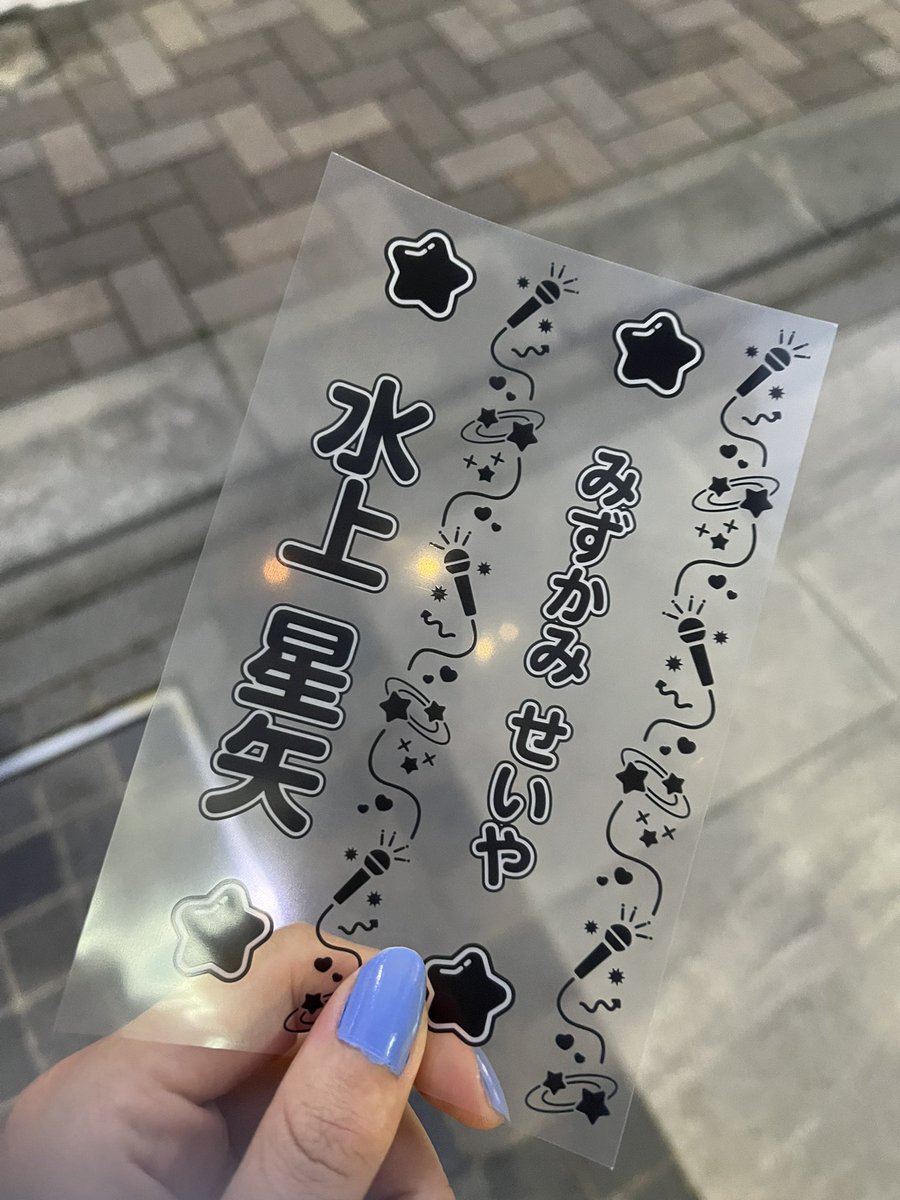 水上 星矢
みずかみ せいや